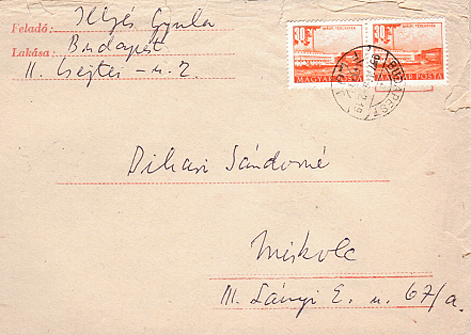 Feladó: Illyés Gyula
Lakása: Budapest
II. Csejtei-u. 7
30f 30f
MAGYAR POSTA
BUDAPEST
Dihasi Sándorné
Miskolc
III. Lányi E. u. 67/a.